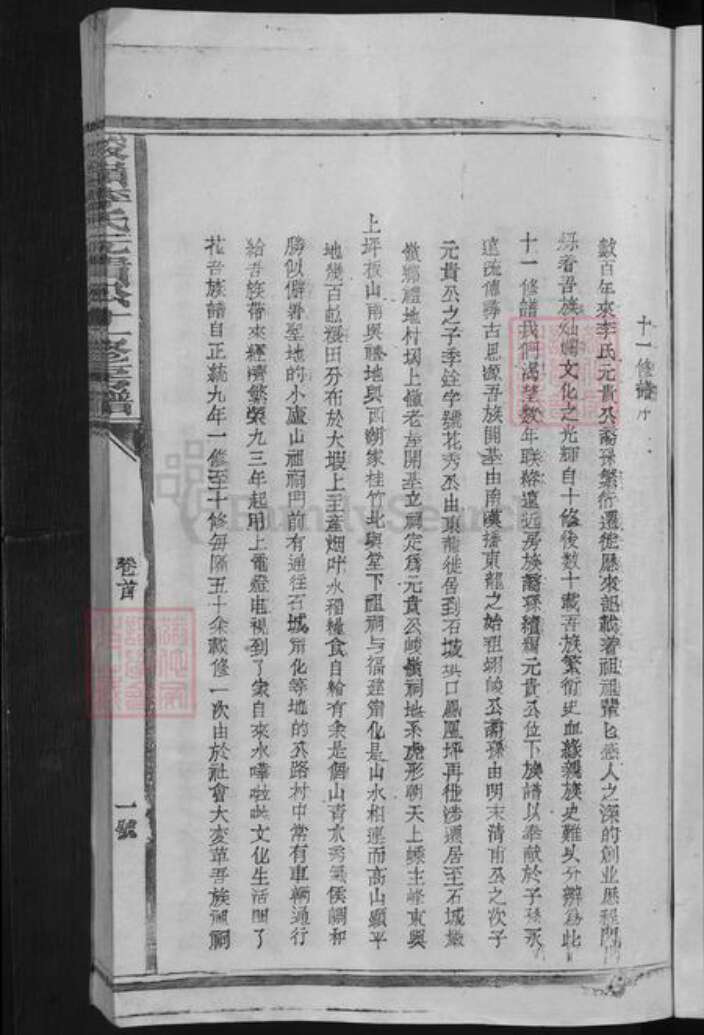 十一修譜序
數百年來李氏元貴公裔孫繁衍遷徙歷來記載着祖祖輩匕感人之深的創业歷程閃
爍着吾族灿爛文化之光輝自十修後数十載吾族繁衍史血緣親族史難以分辨爲此
十一修譜我們渴望数年联絡遠近房族裔孫續編元貴公位下族譜以奉献於子孫永
遠流傳尋古思源吾族開基由南漢搐東龍之始祖翊峻公裔孫由明末清甫公之次子
元貴公之子季銓字號花秀公由東龍徙居到石城珙口鳳凰坪再徙涉遷居至石城
鄉禮地村坝上 老 開基立祠定爲元貴公峻嶺祠地系虎形朝天上嵊主峰東與
上坪板山南與勝地與西胡家桂竹北與堂下祖祠与福建甯化是山水相連而高山顯平
地幾百畝糧田分布於大塅上主產烟叶水稻糧食自給有余是個山青水秀氣侯調和
勝似僻暑聖地的小廬山祖祠門前有通往石城甯化等地的公路村中常有車輛通行
給吾族帶來經濟繁榮九三年起用上電燈电視到了家自来水嘩啦啦文化生活開了
花吾族譜自正統九年一修至十修每隔五十余載修一次由於社會大变革吾族祖祠
峻嶺李氏元貴公十一修房譜
卷首
一號
FamilySearch